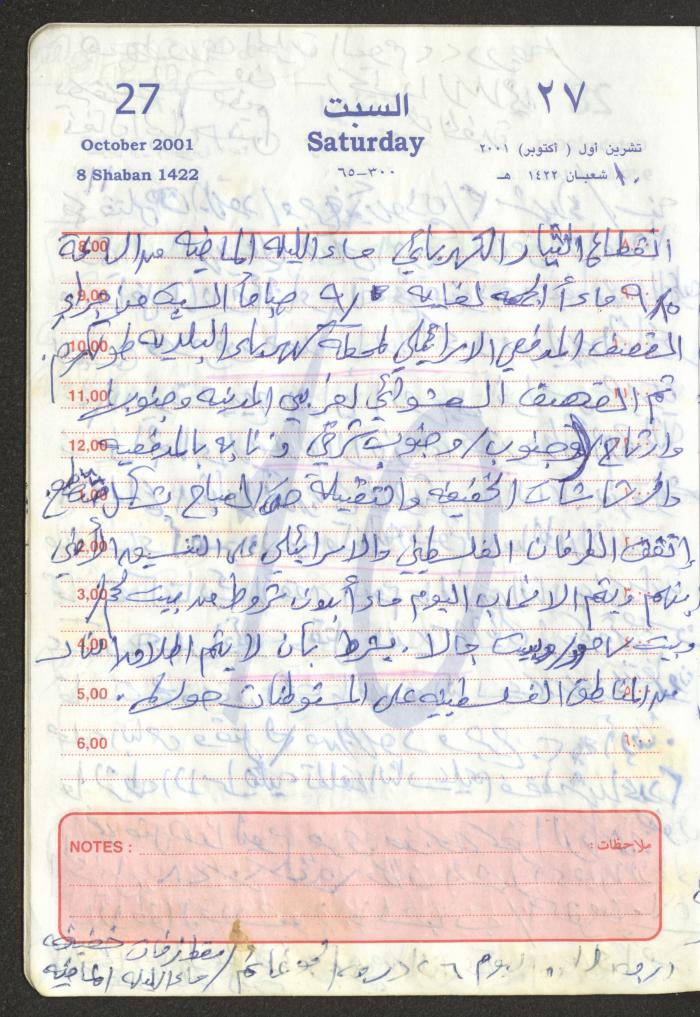 27 السبت ٢٧
October 2001 Saturday تشرين أول ( أكتوبر) ٢٠٠١
8 Shaban 1422 ٣٠٠-٦٥ شعبـان ١٤٢٢ هـ
8,00 انقطاع التيار الكهربائي مساء الليلة الماضية من الساعة
9,00 مساءً لغاية ٩ صباحاً السبت من جراء
10,00 القصف المدفعي الاسرائيلي لمحطة كهرباء البلدية طولكرم
11,00 ثم القصف العشوائي لغربي المدينة وجنوب
12,00 وارتاح / وجنوب / وجنوب شرقي بالمدفعية
1,00 والرشاشات الخفيفة والثقيلة حتى الصباح بشكل متقطع
2,00 إتفق الطرفان الفلسطيني والاسرائيلي على التنسيق الأمني
3,00 بينهم ويتم الانسحاب اليوم مساءً بدون شروط من بيت لحم /
4,00 وبيت ساحور / وبيت جالا . بشرط بأن لا يتم اطلاق النار
5,00 من المناطق الفلسطينية على المستوطنات حولها .
6,00 ٦,٠٠
NOTES : ملاحظات :
اليوم ٢٦ درجة / جو غائم / سقط زخات خفيفة
مساء الليلة الماضية